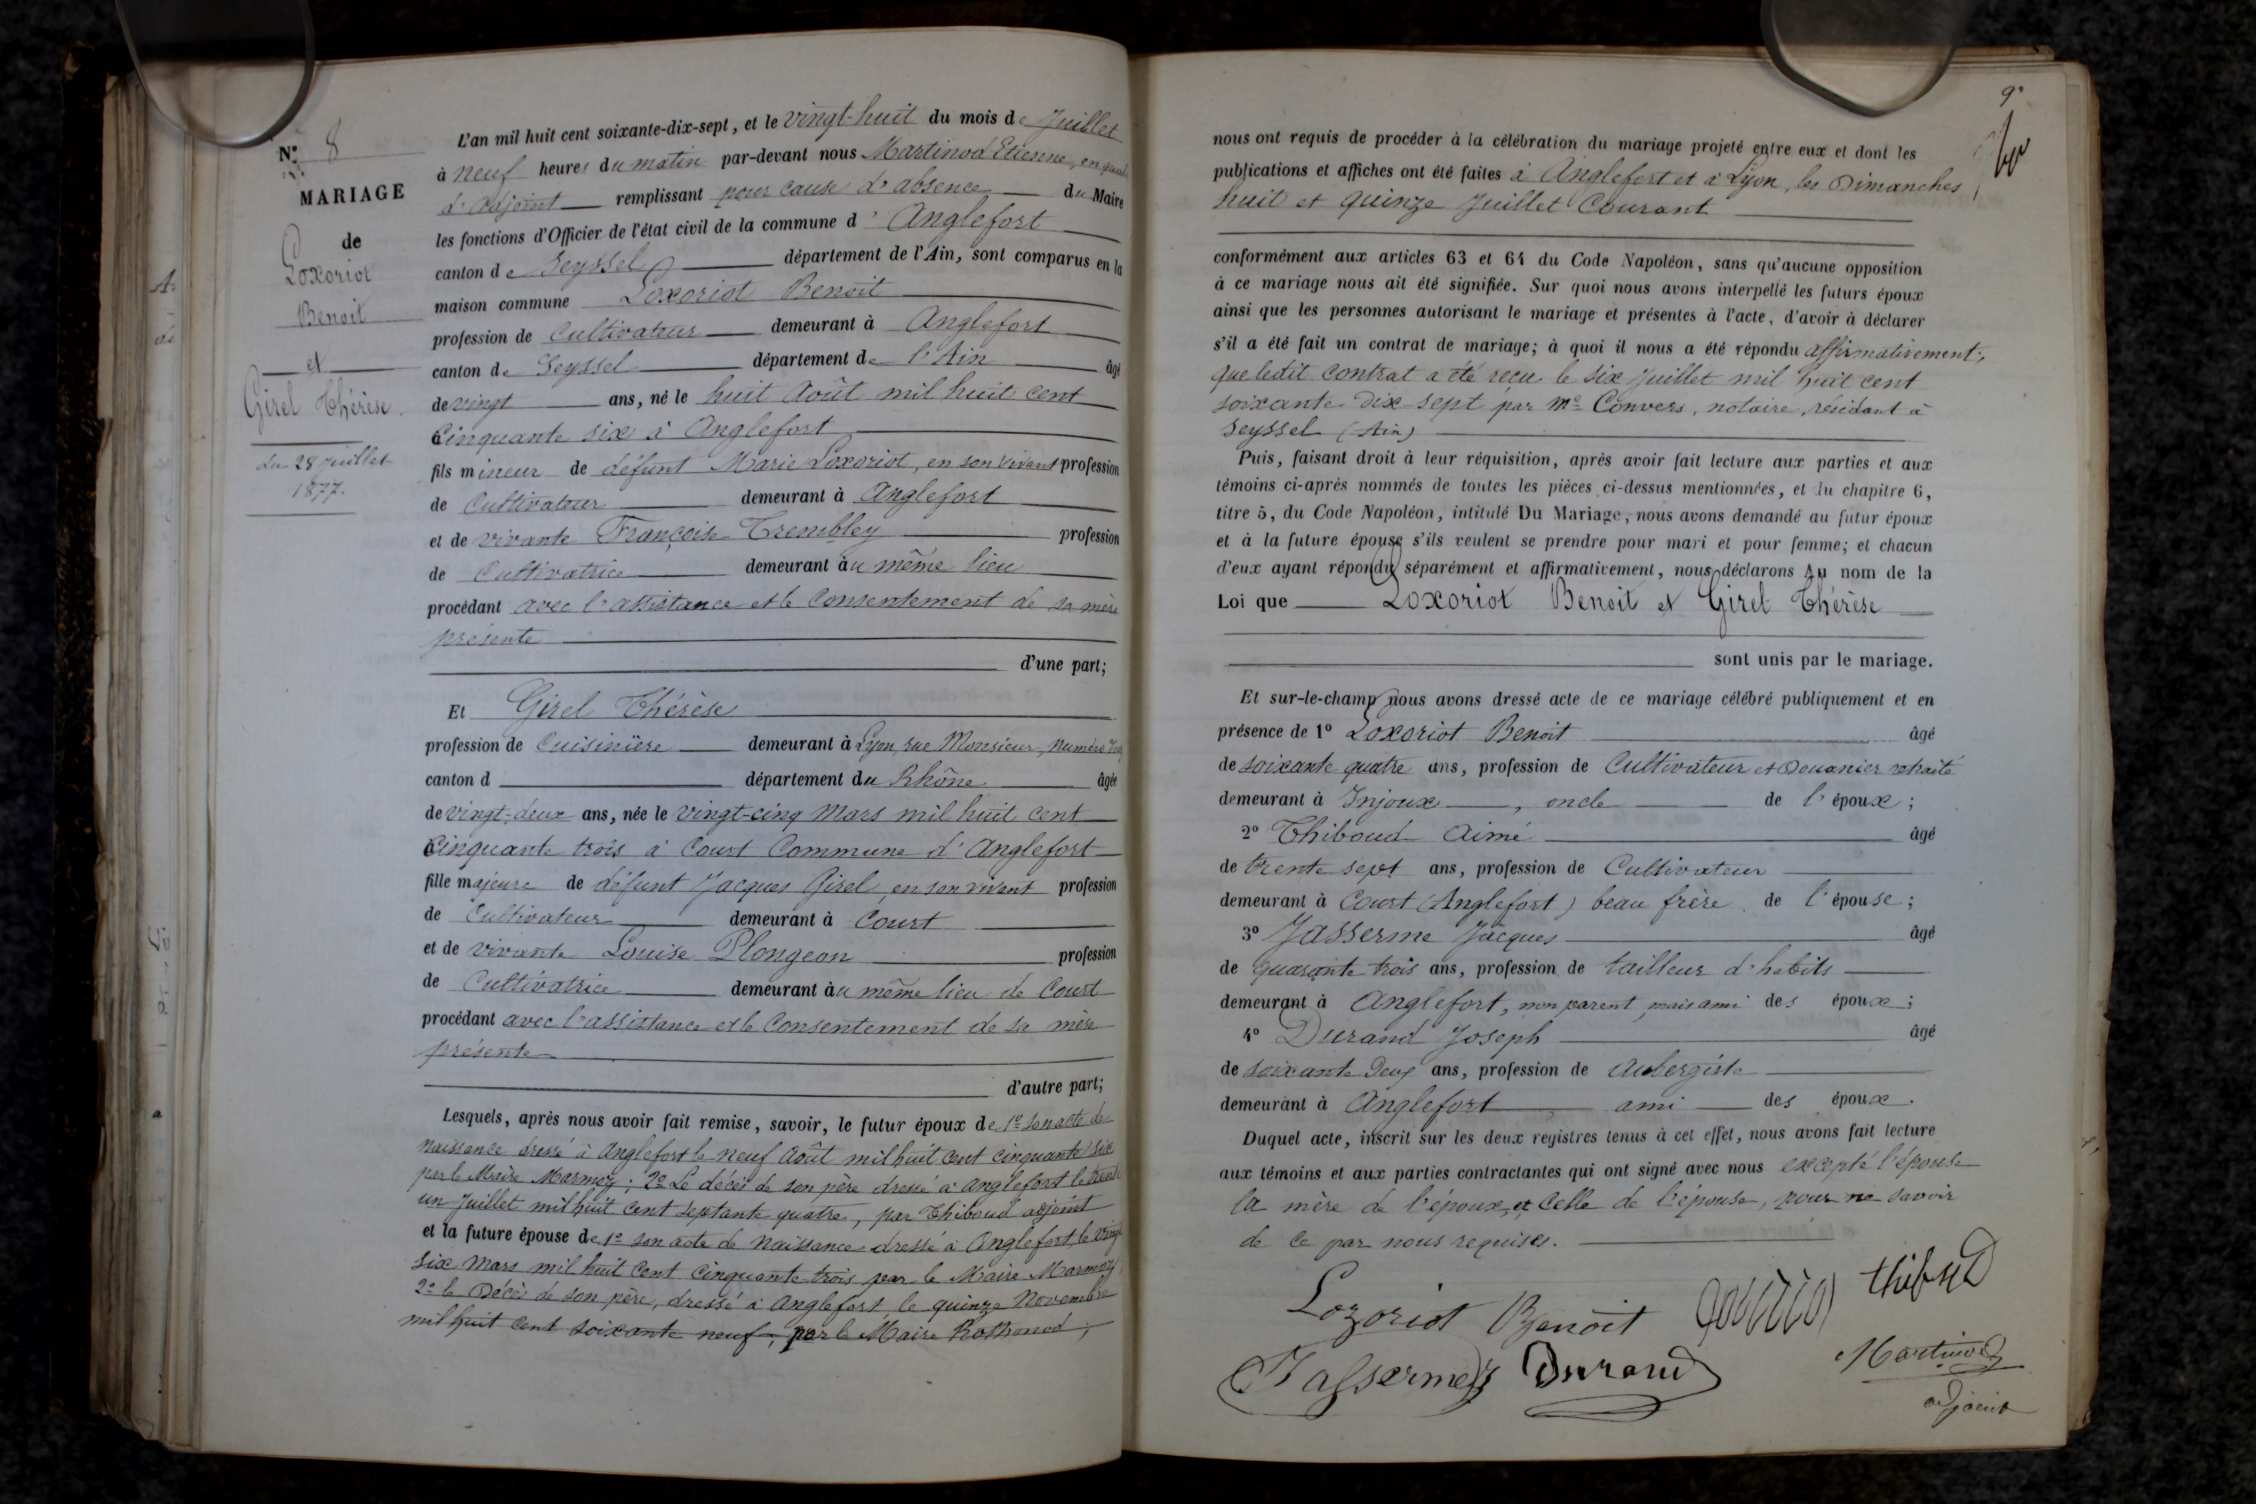 N° 8
MARIAGE
de
Loxoriot
Benoit
et
Girel Thérèse
du 28 Juillet
1877.
L'an mil huit cent soixante-dix-sept, et le vingt-huit du mois de Juillet
à neuf heures du matin par-devant nous Martinod Etienne, en
d'adjoint remplissant pour cause d'absence du Maire
les fonctions d'Officier de l'état civil de la commune d'Anglefort
canton de Seyssel département de l'Ain, sont comparus en la
maison commune Loxoriot Benoit
profession de Cultivateur demeurant à Anglefort
canton de Seyssel département de l'Ain âgé
de vingt ans, né le huit Août mil huit cent
cinquante six à Anglefort
fils mineur de défunt Marie Loxoriot, en son vivant profession
de Cultivateur demeurant à Anglefort
et de vivante Françoise Trembley profession
de Cultivatrice demeurant au même lieu
procédant avec l'assistance et le consentement de sa mère
présente
d'une part;
Et Girel Thérèse
profession de Cuisinière demeurant à Lyon, rue Monsieur, numéro
canton d département du Rhône âgée
de vingt-deux ans, née le vingt-cinq Mars mil huit cent
cinquante trois à Court Commune d'Anglefort
fille majeure de défunt Jacques Girel, en son vivant profession
de Cultivateur demeurant à Court
et de vivante Louise Plongeon profession
de Cultivatrice demeurant au même lieu de Court
procédant avec l'assistance et le consentement de sa mère
présente
d'autre part;
Lesquels, après nous avoir fait remise, savoir, le futur époux de 1° son acte de
naissance dressé à Anglefort le neuf Août mil huit cent cinquante six
par le Maire Marmoy; 2° Le décès de son père dressé à Anglefort le trente
un Juillet mil huit cent septante quatre, par Thiboud adjoint
et la future épouse de 1° son acte de naissance dressé à Anglefort, le vingt
six Mars mil huit cent cinquante trois par le Maire Marmoy
2° le Décès de son père, dressé à Anglefort le quinze Novembre
mil huit cent soixante neuf, par le Maire Rothonod;
9°
nous ont requis de procéder à la célébration du mariage projeté entre eux et dont les
publications et affiches ont été faites à Anglefort et à Lyon, les Dimanches
huit et quinze Juillet Courant
conformément aux articles 63 et 64 du Code Napoléon, sans qu'aucune opposition
à ce mariage nous ait été signifiée. Sur quoi nous avons interpellé les futurs époux
ainsi que les personnes autorisant le mariage et présentes à l'acte, d'avoir à déclarer
s'il a été fait un contrat de mariage; à quoi il nous a été répondu affirmativement,
que ledit contrat a été reçu le six Juillet mil huit cent
soixante-dix-sept par Me Convers, notaire, résidant à
Seyssel (Ain)
Puis, faisant droit à leur réquisition, après avoir fait lecture aux parties et aux
témoins ci-après nommés de toutes les pièces ci-dessus mentionnées, et du chapitre 6,
titre 5, du Code Napoléon, intitulé Du Mariage, nous avons demandé au futur époux
et à la future épouse s'ils veulent se prendre pour mari et pour femme; et chacun
d'eux ayant répondu séparément et affirmativement, nous déclarons au nom de la
Loi que Loxoriot Benoit et Girel Thérèse
sont unis par le mariage.
Et sur-le-champ nous avons dressé acte de ce mariage célébré publiquement et en
présence de 1° Loxoriot Benoit âgé
de soixante quatre ans, profession de Cultivateur et Douanier retraité
demeurant à Injoux, oncle de l'époux;
2° Thiboud Aimé âgé
de trente sept ans, profession de Cultivateur
demeurant à Court (Anglefort) beau frère de l'épouse;
3° Jasserme Jacques âgé
de quarante trois ans, profession de tailleur d'habits
demeurant à Anglefort, non parent, mais ami des époux;
4° Durand Joseph âgé
de soixante Deux ans, profession de Aubergiste
demeurant à Anglefort ami des époux.
Duquel acte, inscrit sur les deux registres tenus à cet effet, nous avons fait lecture
aux témoins et aux parties contractantes qui ont signé avec nous excepté l'épouse
la mère de l'époux, et Celle de l'épouse, pour ne savoir
de ce par nous requises.
Lozoriot Benoit
thiboud
Jasserme Durand
Martinod
adjoint